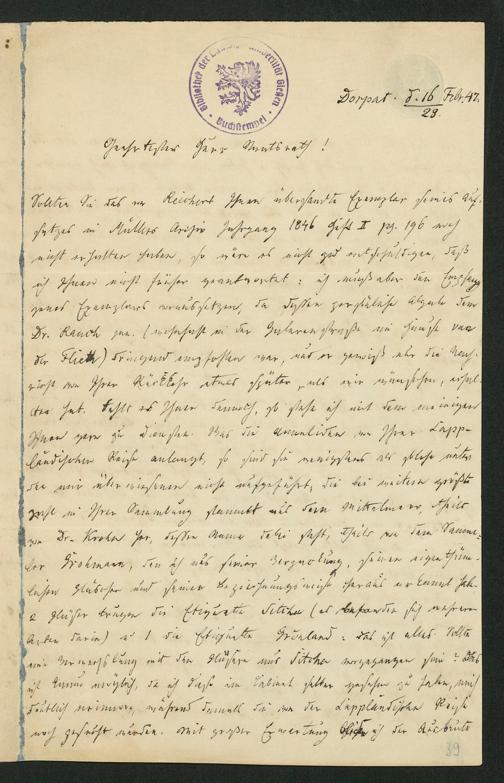 Bibliothek der Ludwigs-Universität Giessen
Buchstempel
Dorpat. d. 16/28. Febr. 47.
Geehrtester Herr Amtsrath!
Sollten Sie das von Reichert Ihnen übersandte Exemplar seines Auf-
satzes in Müllers Archiv Jahrgang 1846 Heft II pg. 196 noch
nicht erhalten haben, so wäre es nicht zu entschuldigen, daß
ich Ihnen nicht früher geantwortet: ich mußte aber den Empfang
jenes Exemplares voraussetzen, da dessen Abgabe dem
Dr. Rauch jun. (wohnhaft in der im Hause von
der Flieth) dringend empfohlen war, und er gewiß aber die Nach-
richt von Ihrer Rückkehr etwas später, als wir wünschten, erhal-
ten hat. Fehlt es Ihnen dennoch, so stehe ich mit dem meinigen
Ihnen gern zu Diensten. Was die Anneliden von Ihrer Lapp-
ländischen Reise anlangt, so sind sie wenigstens als solche unter
den mir überwiesenen nicht aufgeführt, die bei weitem größte
in Ihrer Sammlung stammt aus dem Mittelmeer, theils
von Dr. Krohn her, dessen Name dabei steht, theils von dem Samm-
ler Grohmann, den ich aus seiner Verpackung, seinen eigenthüm-
lichen Gläschen und seiner Bezeichnungsweise heraus erkannt habe.
2 Gläser trugen die Etiquette Sitcha (es befanden sich mehrere
Arten darin) u 1 die Etiquette Grönland: das ist alles. Sollte
eine Verwechslung mit den Gläsern aus Sitcha vorgegangen sein?
ist kaum möglich, da ich diese im Cabinet selber gesehen zu haben, mich
deutlich erinnere, während damals die von der Lappländischen Reise
noch gesucht wurden. Mit großer Erwartung ich der Ausbeute
39